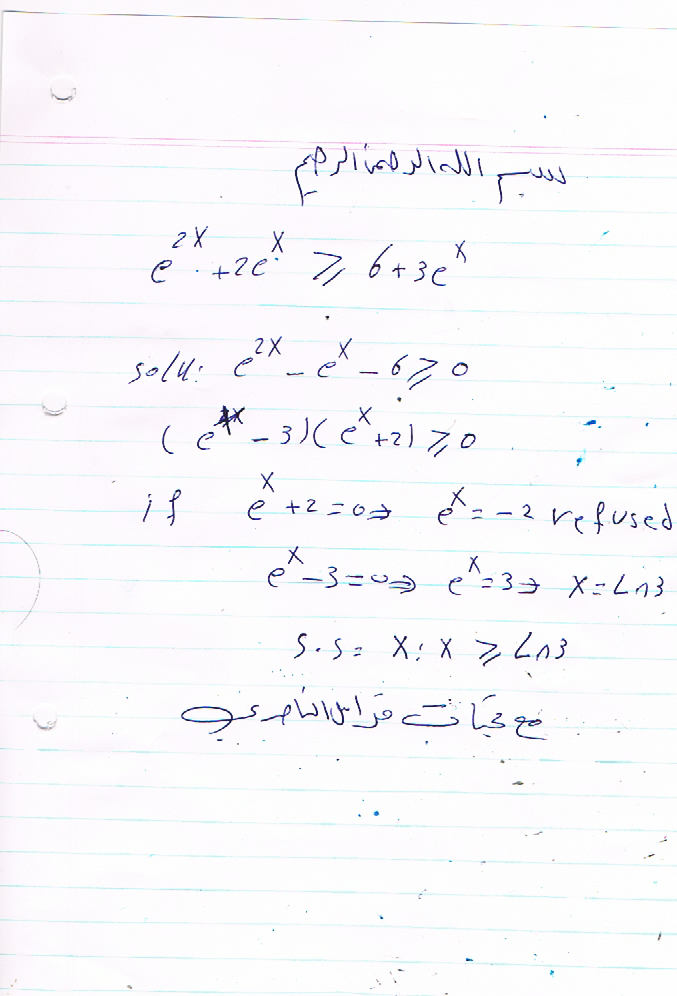 بسم الله الرحمن الرحيم
e^{2x} + 2e^x ≥ 6 + 3e^x
solu: e^{2x} - e^x - 6 ≥ 0
(e^x - 3)(e^x + 2) ≥ 0
if e^x + 2 = 0 ⇒ e^x = -2 refused
e^x - 3 = 0 ⇒ e^x = 3 ⇒ x = Ln3
S.S = X: X ≥ Ln3
مع تحيات فراس الناصري